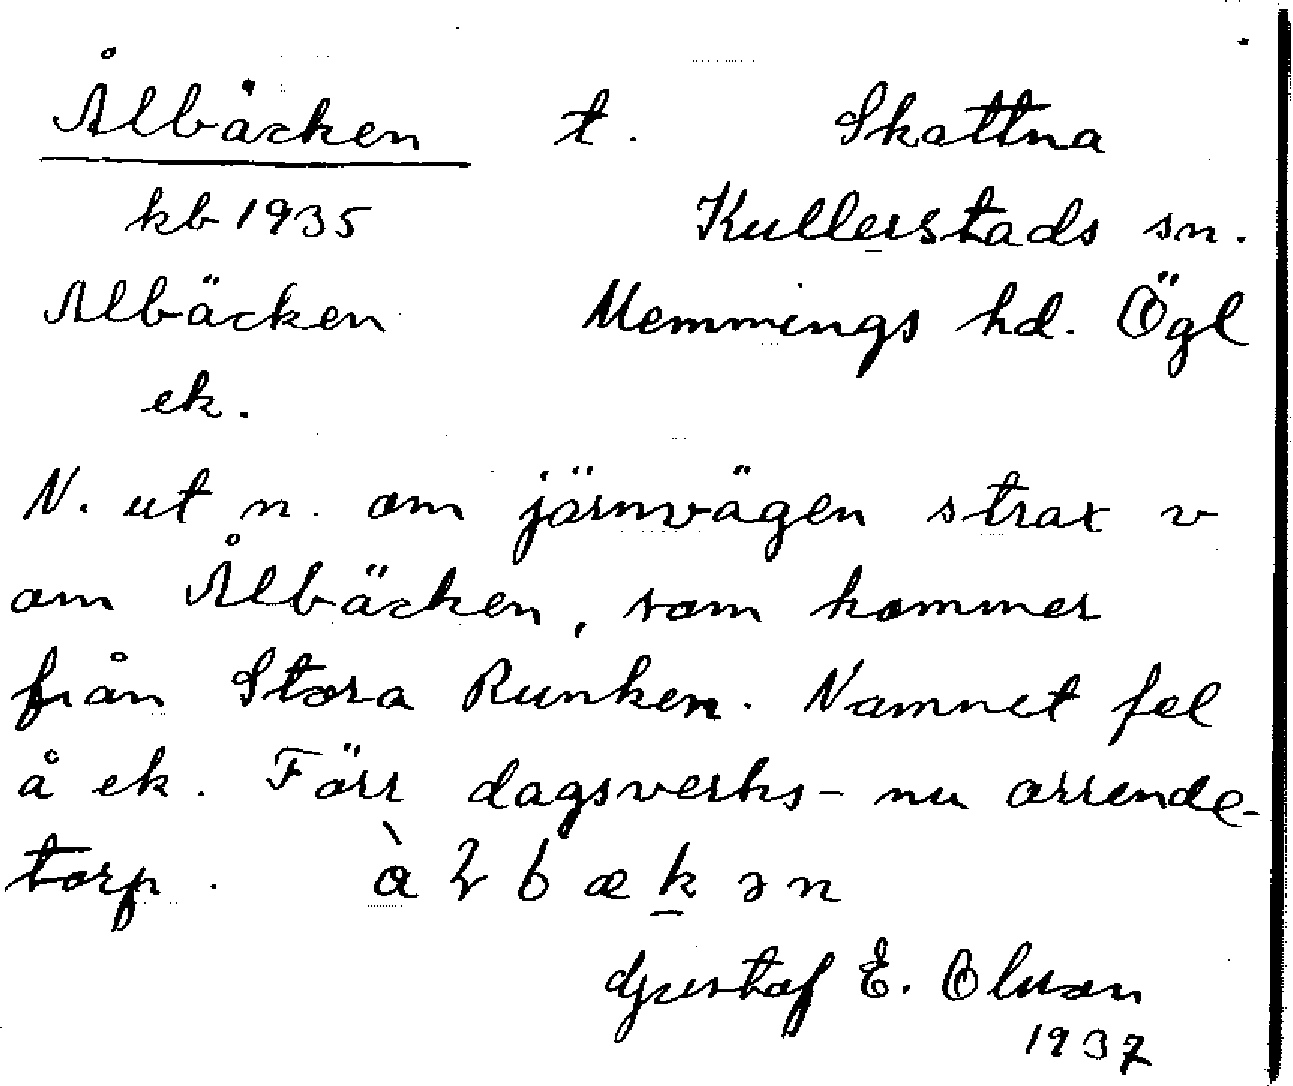 Ålbäcken t. Skattna
kb 1935 Kullerstads sn.
Albäcken Memmings hd. Ögl
ek.
N. ut n. om järnvägen strax v
om Ålbäcken, som kommer
från Stora Runken. Namnet fel
å ek. Förr dagsverks- nu arrende-
torp. 
Gustaf E. Olsson
1937